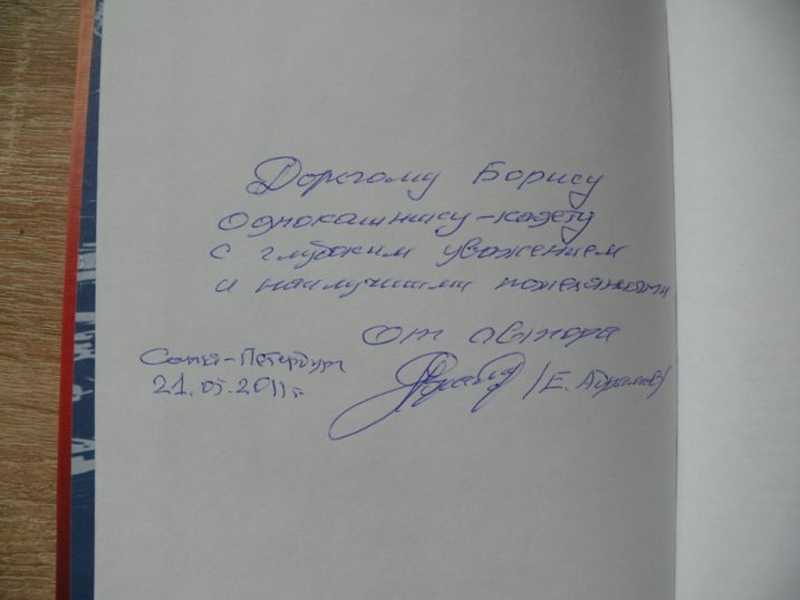 Дорогому Борису
однокашнику-кадету
с глубоким уважением
и наилучшими пожеланиями
от автора
Санкт-Петербург
21.05.2011г.
/Е. Абрамов/